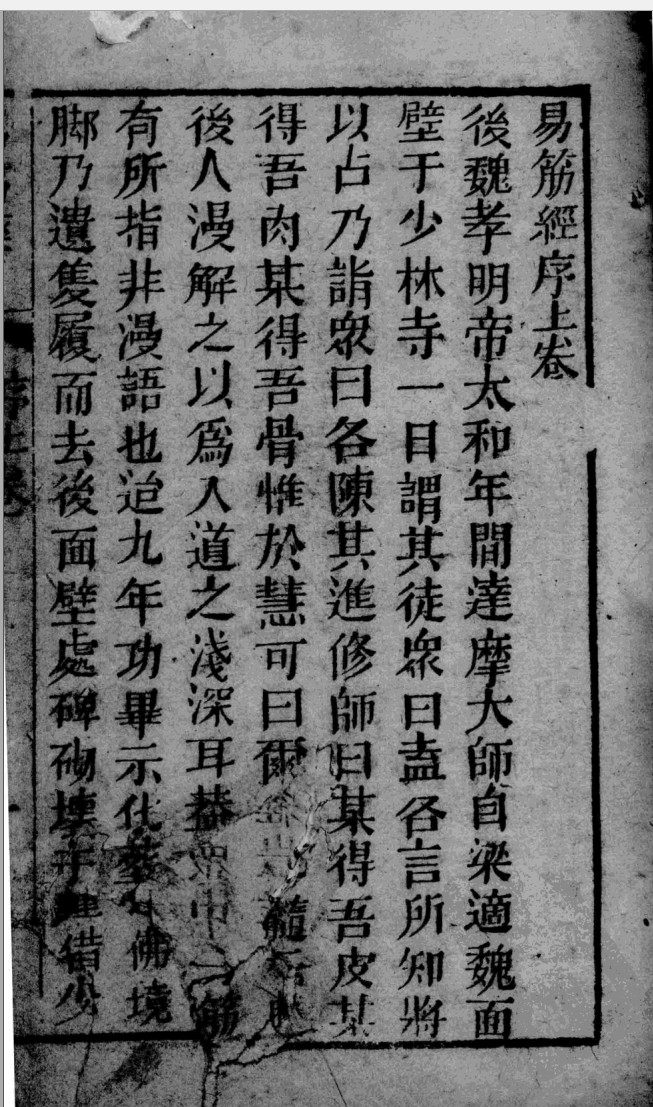 易筋經序上卷
後魏孝明帝太和年間達摩大師自梁適魏面
壁于少林寺一日謂其徒眾曰盍各言所知將
以占乃詣眾曰各陳其進修師曰某得吾皮某
得吾肉某得吾骨惟於慧可曰爾髓
後人漫解之以爲入道之淺深耳葢眾中筋
有所指非漫語也迨九年功畢示化葬佛境
脚乃遺隻履而去後面壁處碑砌壞于少